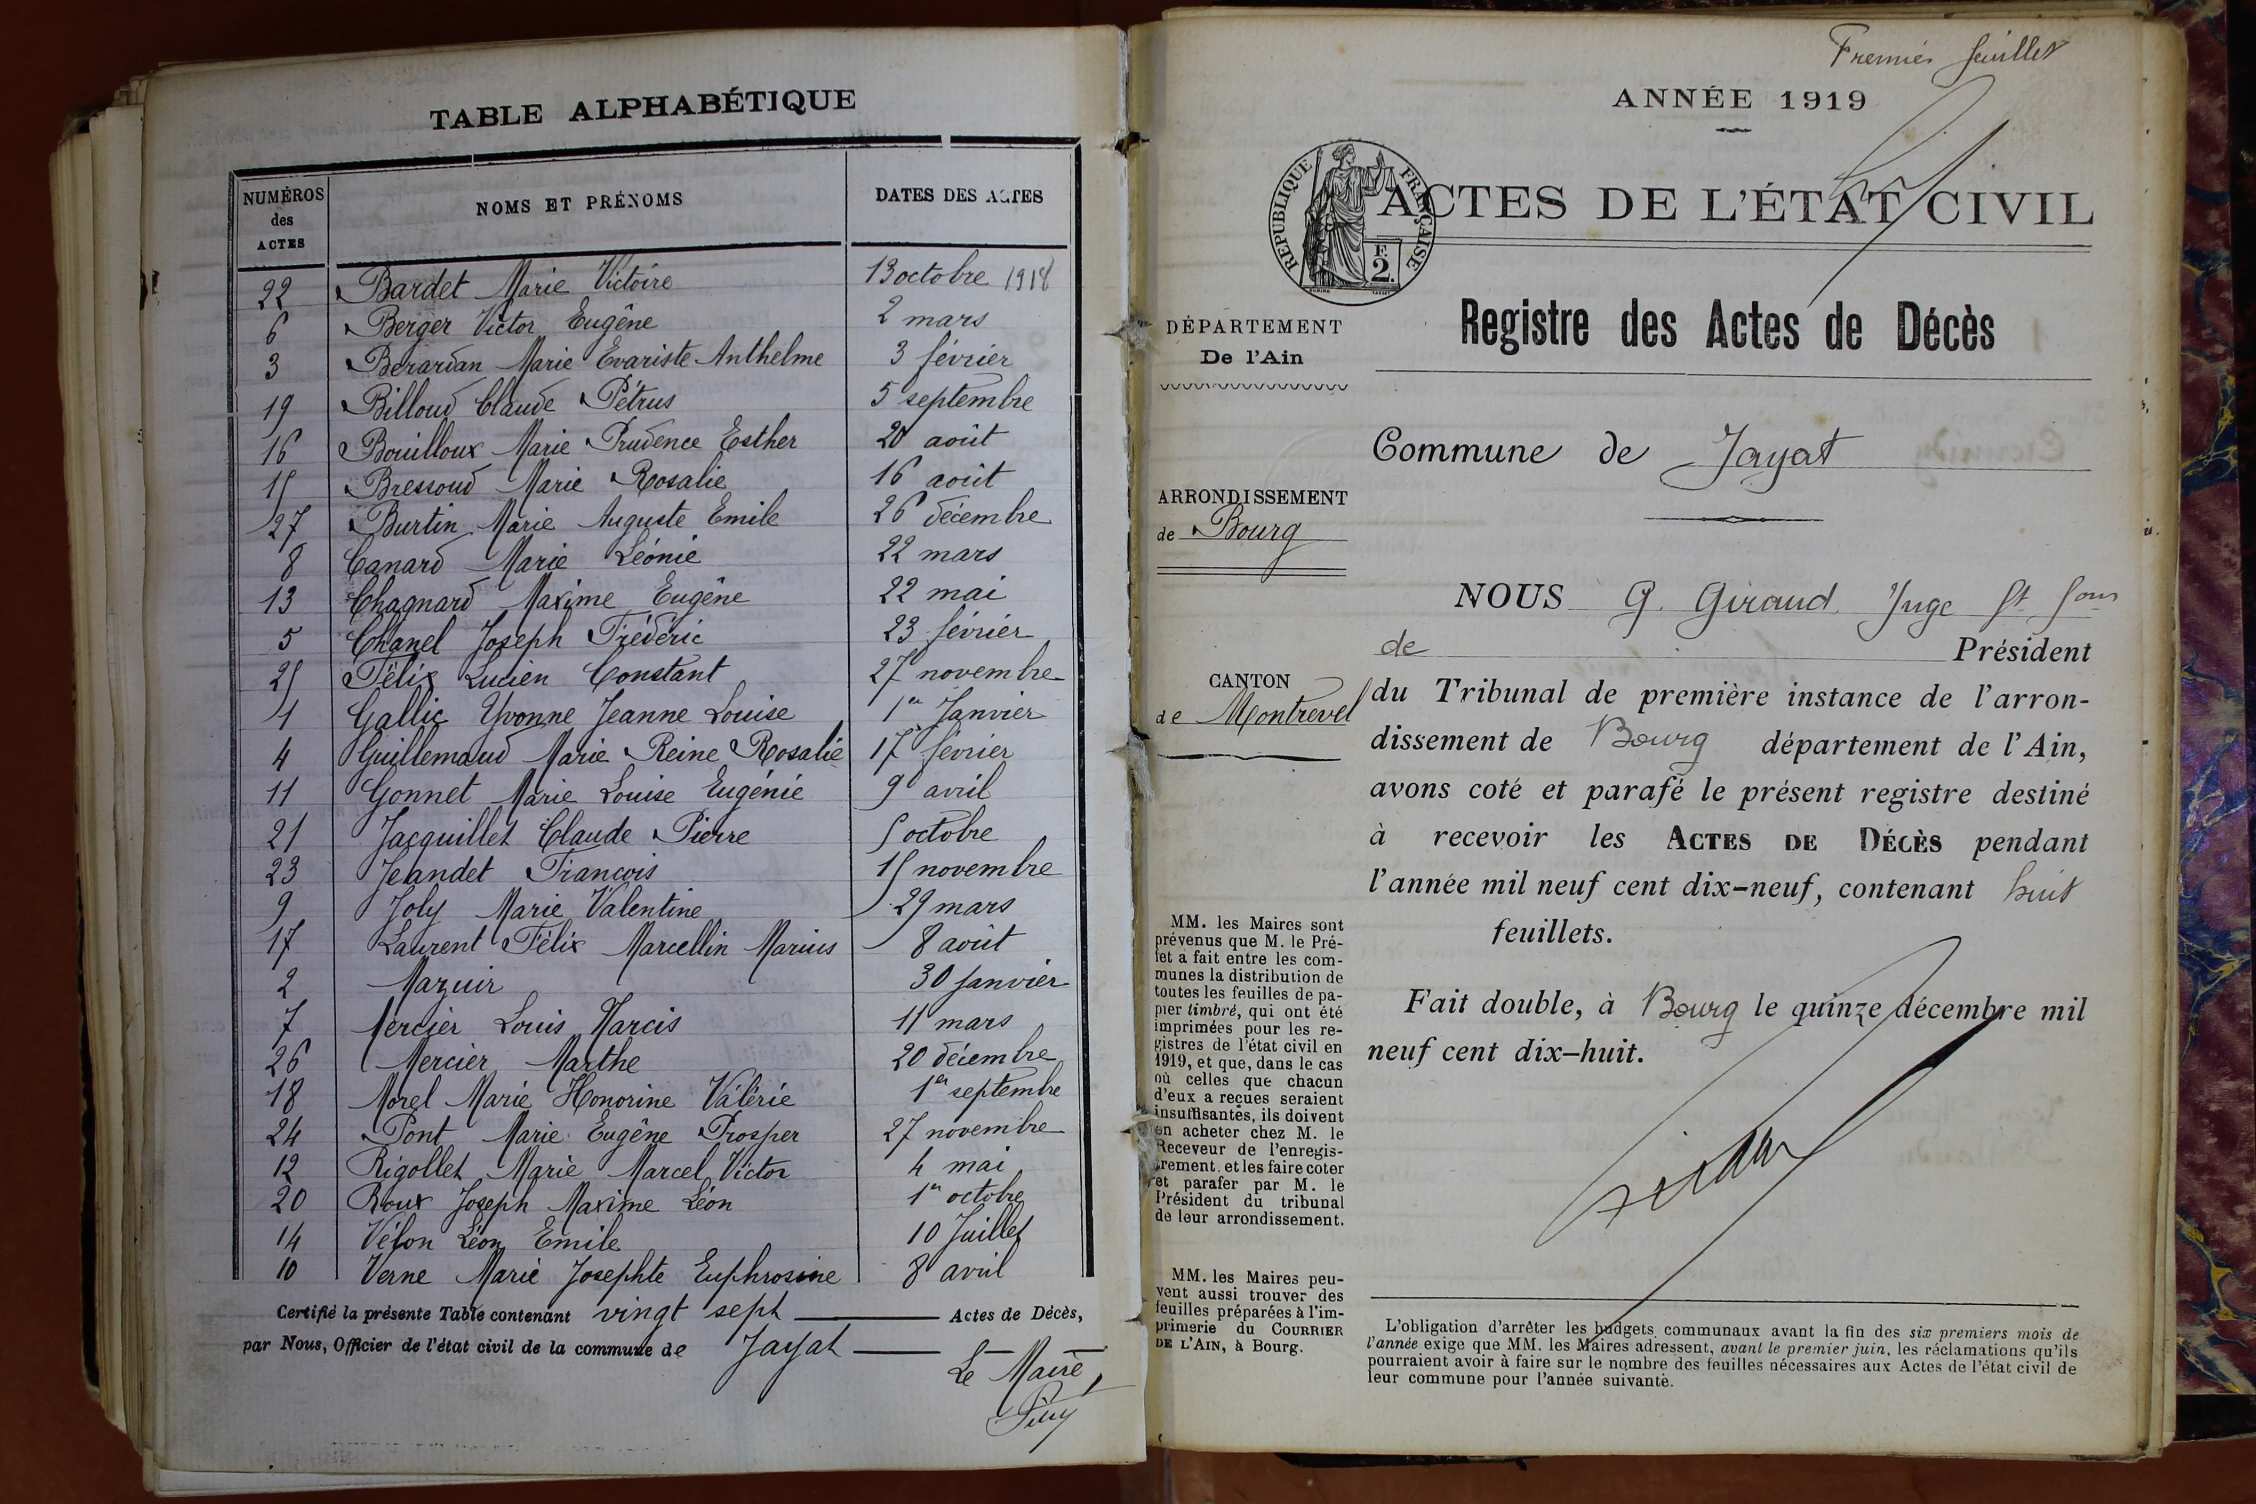 TABLE ALPHABÉTIQUE
NUMÉROS des ACTES NOMS ET PRÉNOMS DATES DES ACTES
22 Bardet Marie Victoire 13 octobre 1918
6 Berger Victor Eugêne 2 mars
3 Berardan Marie Evariste Anthelme 3 février
19 Billoud Claude Pétrus 5 septembre
16 Bouilloux Marie Prudence Esther 20 août
15 Bressoud Marie Rosalie 16 août
27 Burtin Marie Auguste Emile 26 décembre
8 Canard Marie Léonie 22 mars
13 Chagnard Maxime Eugêne 22 mai
5 Chanel Joseph Frédéric 23 février
25 Félix Lucien Constant 27 novembre
1 Gallic Yvonne Jeanne Louise 1er Janvier
4 Guillemaud Marie Reine Rosalie 17 février
11 Gonnet Marie Louise Eugénie 9 avril
21 Jacquillet Claude Pierre 5 octobre
23 Jeandet François 15 novembre
9 Joly Marie Valentine 29 mars
17 Laurent Félix Marcellin Marius 8 août
2 Mazuir 30 Janvier
7 Mercier Louis Narcis 11 mars
26 Mercier Marthe 20 décembre
18 Morel Marie Honorine Valérie 1er septembre
24 Pont Marie Eugêne Prosper 27 novembre
12 Rigollet Marie Marcel Victor 4 mai
20 Roux Joseph Maxime Léon 1er octobre
14 Vélon Léon Emile 10 Juillet
10 Verne Marie Josephte Euphrosine 8 avril
Certifié la présente Table contenant vingt sept Actes de Décès,
par Nous, Officier de l'état civil de la commune de Jayat
Le Maire,
Premier feuillet
ANNÉE 1919
RÉPUBLIQUE FRANÇAISE
F.
2.
ACTES DE L'ÉTAT CIVIL
Registre des Actes de Décès
DÉPARTEMENT
De l'Ain
Commune de Jayat
ARRONDISSEMENT
de Bourg
CANTON
de Montrevel
NOUS G. Giraud Juge
de Président
du Tribunal de première instance de l'arron-
dissement de Bourg département de l'Ain,
avons coté et parafé le présent registre destiné
à recevoir les ACTES DE DÉCÈS pendant
l'année mil neuf cent dix-neuf, contenant huit
feuillets.
Fait double, à Bourg le quinze décembre mil
neuf cent dix-huit.
MM. les Maires sont
prévenus que M. le Pré-
fet a fait entre les com-
munes la distribution de
toutes les feuilles de pa-
pier timbré, qui ont été
imprimées pour les re-
gistres de l'état civil en
1919, et que, dans le cas
où celles que chacun
d'eux a reçues seraient
insuffisantes, ils doivent
en acheter chez M. le
Receveur de l'enregis-
trement et les faire coter
et parafer par M. le
Président du tribunal
de leur arrondissement.
MM. les Maires peu-
vent aussi trouver des
feuilles préparées à l'im-
primerie du COURRIER
DE L'AIN, à Bourg.
L'obligation d'arrêter les budgets communaux avant la fin des six premiers mois de
l'année exige que MM. les Maires adressent, avant le premier juin, les réclamations qu'ils
pourraient avoir à faire sur le nombre des feuilles nécessaires aux Actes de l'état civil de
leur commune pour l'année suivante.